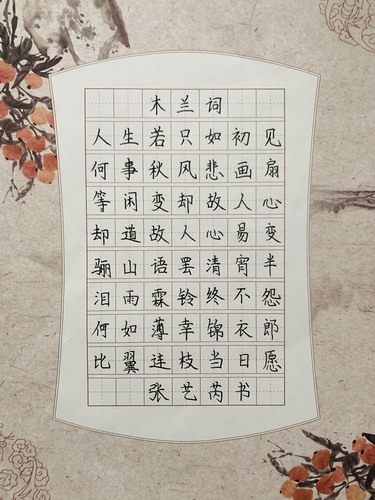 木兰词
人生若只如初见
何事秋风悲画扇
等闲变却故人心
却道故人心易变
骊山语罢清宵半
泪雨霖铃终不怨
何如薄幸锦衣郎
比翼连枝当日愿
张艺芮书